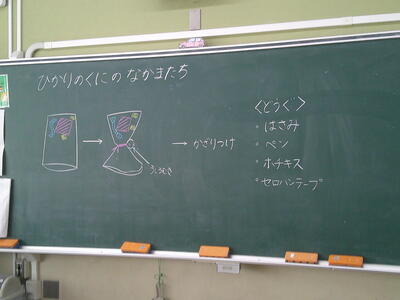 ひかりのくにの なかまたち
→ → かざりつけ
うしろむき
〈どうぐ〉
・はさみ
・ペン
・ホチキス
・セロハンテープ